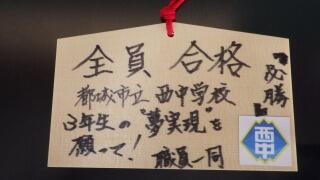 全員 合格
『必勝』
都城市立 西中学校
3年生の"夢実現"を
願って! 職員一同
西中